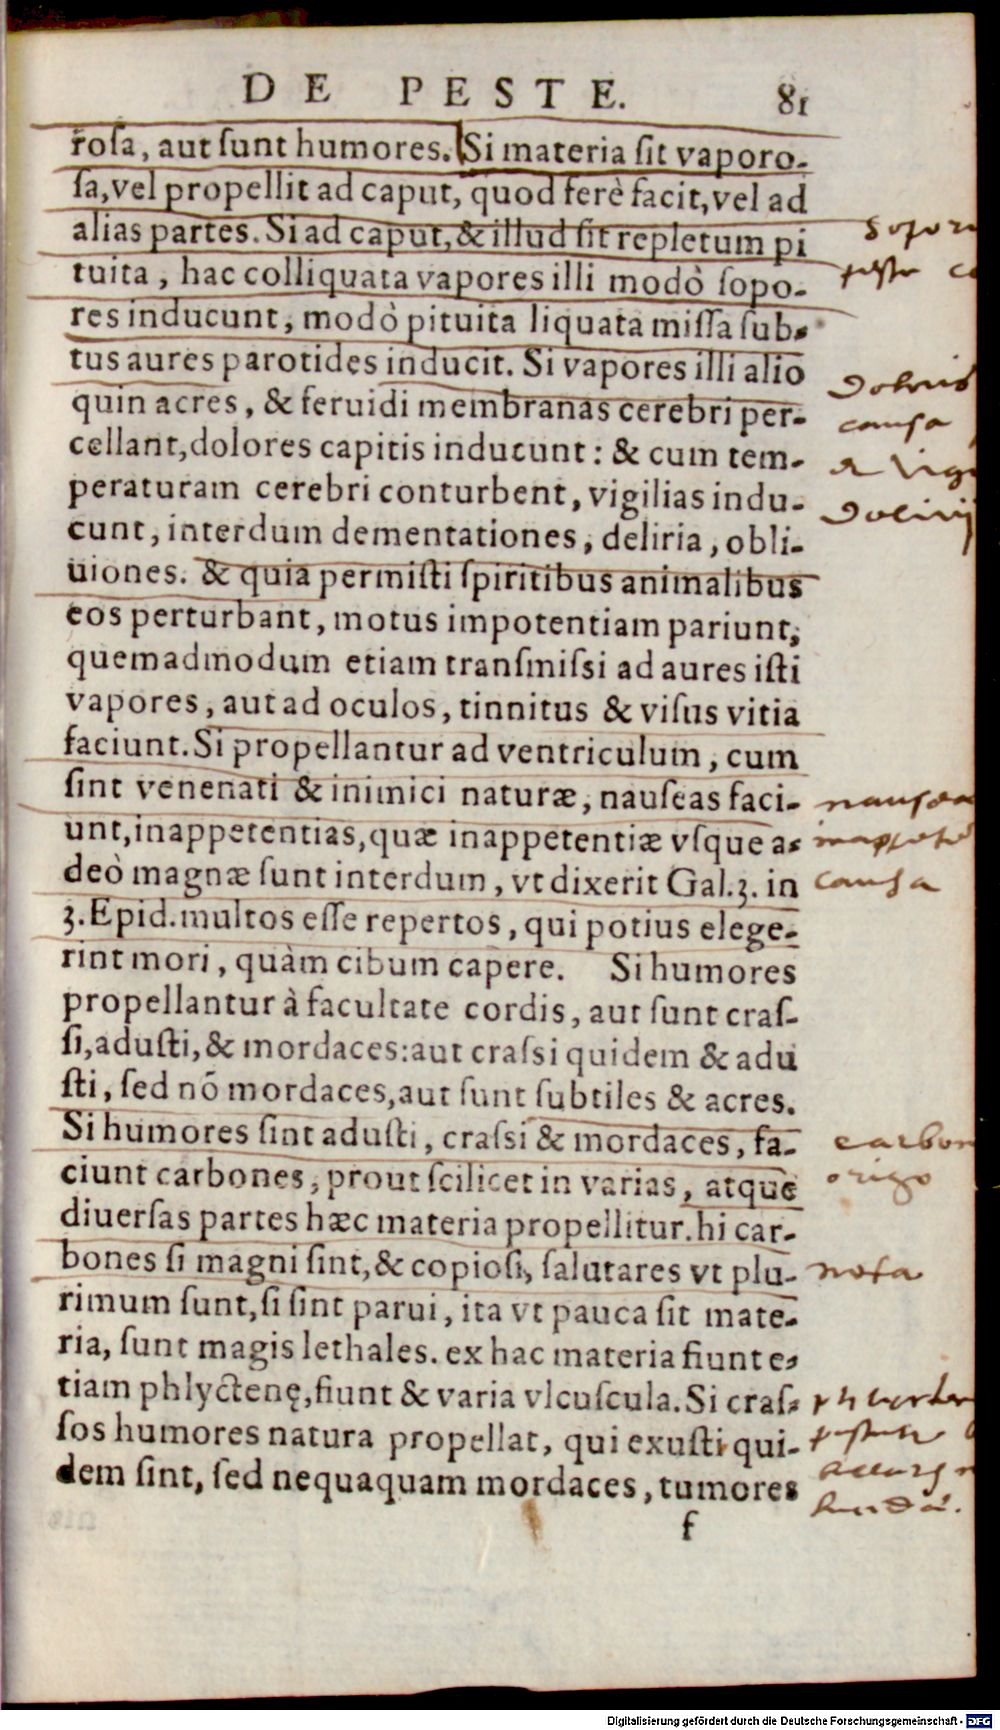 DE PESTE. 81
rosa, aut sunt humores. Si materia sit vaporo-
sa, vel propellit ad caput, quod ferè facit, vel ad
alias partes. Si ad caput, & illud sit repletum pi
tuita, hac colliquata vapores illi modò sopo-
res inducunt, modò pituita liquata missa sub-
tus aures parotides inducit. Si vapores illi alio
quin acres, & feruidi membranas cerebri per-
cellant, dolores capitis inducunt: & cum tem-
peraturam cerebri conturbent, vigilias indu-
cunt, interdum dementationes, deliria, obli-
uiones. & quia permisti spiritibus animalibus
eos perturbant, motus impotentiam pariunt,
quemadmodum etiam transmissi ad aures isti
vapores, aut ad oculos, tinnitus & visus vitia
faciunt. Si propellantur ad ventriculum, cum
sint venenati & inimici naturæ, nauseas faci-
unt, inappetentias, quæ inappetentiæ vsque a-
deò magnæ sunt interdum, vt dixerit Gal. 3. in
3. Epid. multos esse repertos, qui potius elege-
rint mori, quàm cibum capere. Si humores
propellantur à facultate cordis, aut sunt cras-
si, adusti, & mordaces: aut crassi quidem & adu
sti, sed nō mordaces, aut sunt subtiles & acres.
Si humores sint adusti, crassi & mordaces, fa-
ciunt carbones, prout scilicet in varias, atque
diuersas partes hæc materia propellitur. hi car-
bones si magni sint, & copiosi, salutares vt plu-
rimum sunt, si sint parui, ita vt pauca sit mate-
ria, sunt magis lethales. ex hac materia fiunt e-
tiam phlyctenę, fiunt & varia vlcuscula. Si cras-
sos humores natura propellat, qui exusti qui-
dem sint, sed nequaquam mordaces, tumores
f
causa
nausea
causa
origo
nota
Digitalisierung gefördert durch die Deutsche Forschungsgemeinschaft - DFG